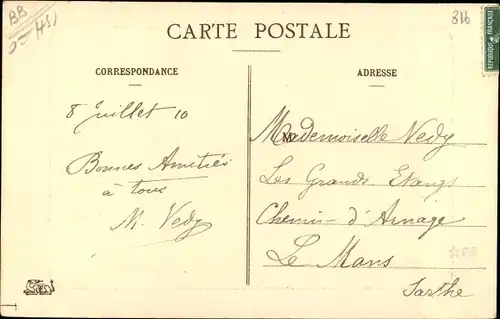 BB
451
CARTE POSTALE
816
CORRESPONDANCE
ADRESSE
8 Juillet 10
Bonnes Amitiés
à tous
M. Vedy
Mademoiselle Vedy
Les Grands Etangs
Chemin d'Arnage
Le Mans
Sarthe